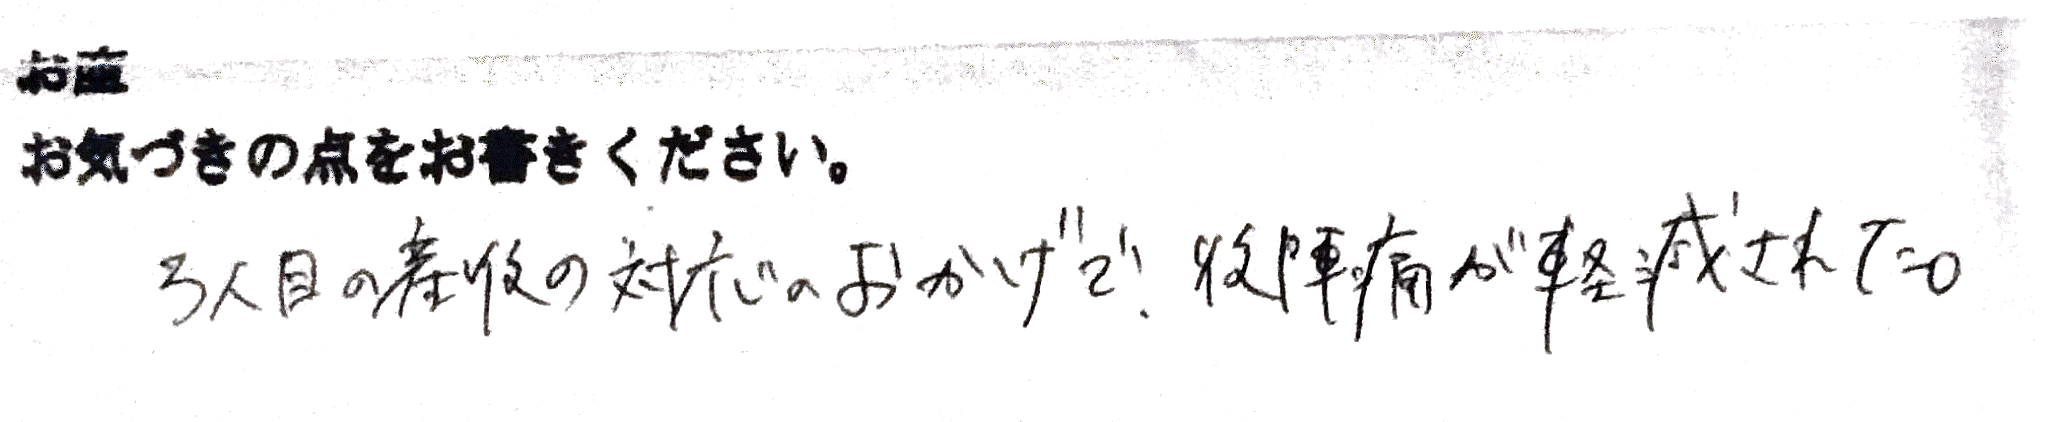 お産
お気づきの点をお書きください。
3人目の産後の対応のおかげで、後陣痛が軽減されて